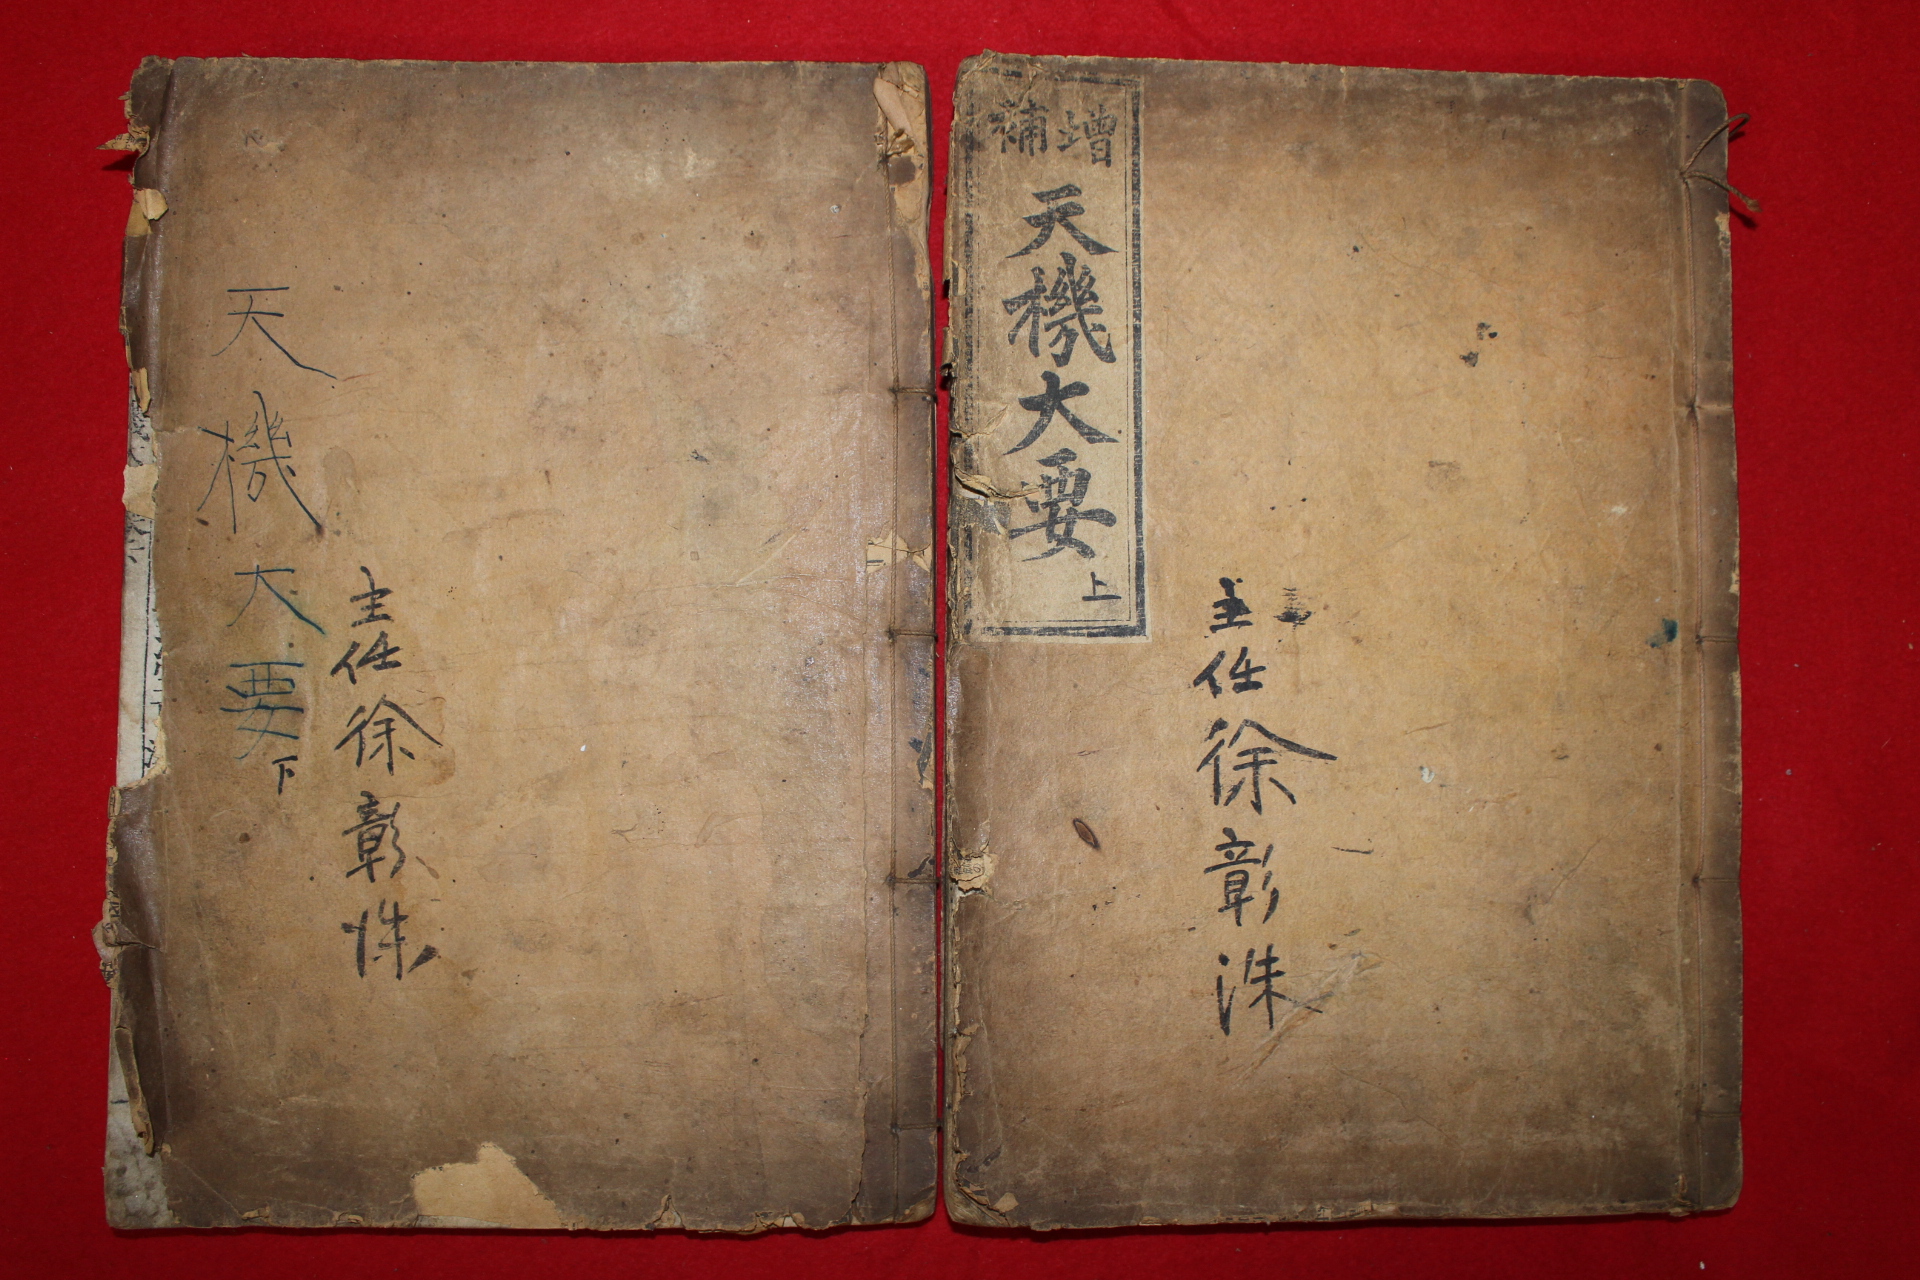 增補
天機大要
上
主任 徐彰洙
天機大要
下
主任 徐彰洙